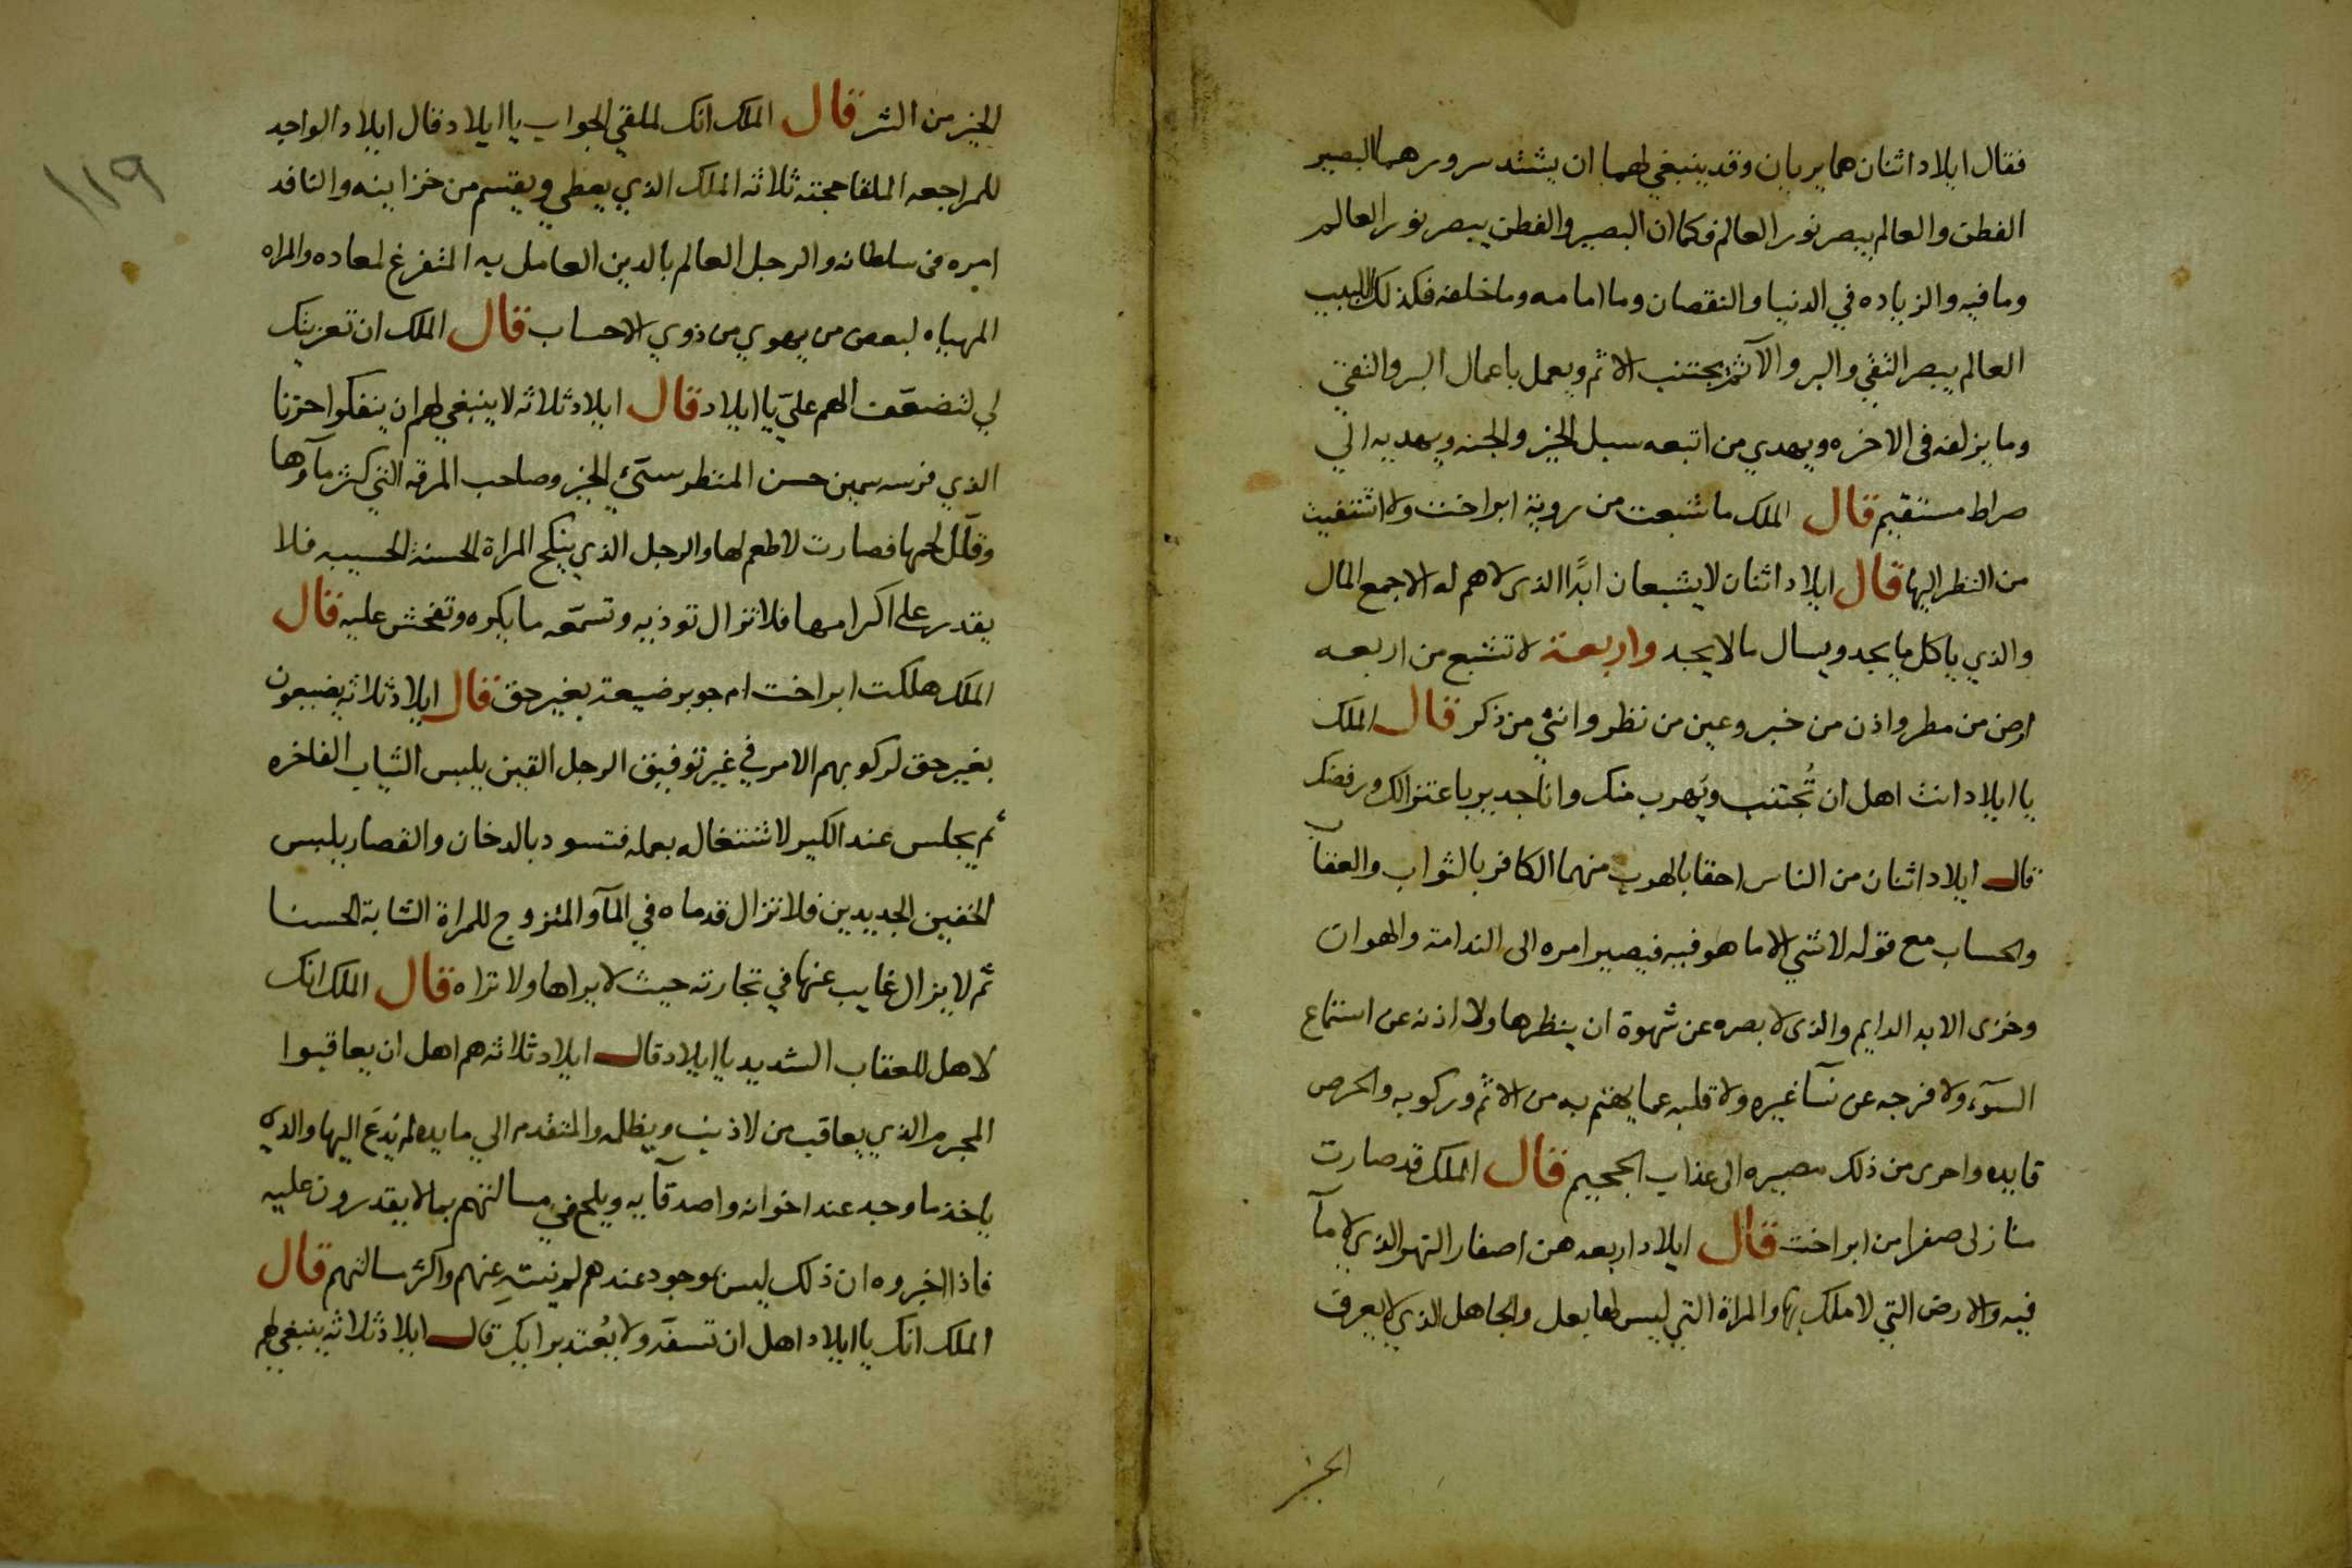 فقال ايلاد اثنان هما يريان وقد ينبغي لهما ان يشتد سرورهما البصير
الفطن والعالم يبصر نور العالم فكما ان البصير والفطن يبصر نور العالم
وما فيه والزياده في الدنيا والنقصان وما امامه وما خلفه فكذلك اللبيب
العالم يبصر التقي والبر والآثم يجتنب الاثم ويعمل باعمال البر والتقي
وما يزلفه فى الاخره ويهدي من اتبعه سبل الخير والجنه ويهديه الي
صراط مستقيم قال الملك ما شبعت من روية ابراخت ولا اشتفيت
من النظر اليها قال ايلاد اثنان لا يشبعان ابدًا الذى لا هم له الا جمع المال
والذي ياكل ما يجد ويسال ما لا يجد واربعة لا تشبع من اربعه
ارض من مطر واذن من خبر وعين من نظر وانثي من ذكر قال الملك
يا ايلاد انت اهل ان تُجتنب ويَهرب منك وانا جدير باعتزالك ورفضك
قال ايلاد اثنان من الناس احقا بالهرب منهما الكافر بالثواب والعقاب
والحساب مع قوله لا شي الا ما هو فيه فيصير امره الى الندامة والهوان
وخزى الابد الدايم والذى لا بصره عن شهوة ان ينظرها ولا اذنه عن استماع
السوٓء ولا فرجه عن نسآ غيره ولا قلبه عما يهتم به من الاثم وركوبه والحرص
قايده واحرى من ذلك مصيره الى عذاب الجحيم قال الملك قد صارت
منازلى صفرا من ابراخت قال ايلاد اربعه هن اصفار النهر الذي لا مآ
فيه والارض التي لا ملك بها والمراة التي ليس لها بعل والجاهل الذي لا يعرف
الخير
١١٩
الخير من الشر قال الملك انك لملقي الجواب يا ايلاد قال ايلاد الواجد
للمراجعه الملقا حجته ثلاثه الملك الذي يعطي ويقسم من خزاينه والنافد
امره فى سلطانه والرجل العالم بالدين العامل به المتفرغ لمعاده والمراه
المهياه لبعض من يهوي من ذوي الاحساب قال الملك ان تعزيتك
لي لتضعّف الهم عليّ يا ايلاد قال ايلاد ثلاثه لا ينبغي لهم ان ينفكوا حزنا
الذي فرسه سمين حسن المنظر سيّئ الخبر وصاحب المرقه التي كثر مآوها
وقلّ لحمها فصارت لا طعم لها والرجل الذي ينكح المراة الحسنة الحسيبه فلا
يقدر على اكرامها فلا تزال توذيه وتسمّعه ما يكره وتفحش عليه قال
الملك هلكت ابراخت ام جوبر ضيعة بغير حق قال ايلاد ثلاثه يضيعون
بغير حق لركوبهم الامر في غير توفيق الرجل القين يلبس الثياب الفاخره
ثم يجلس عند الكير لاشتغاله بعمله فتسود بالدخان والقصار يلبس
الخفين الجديدين فلا تزال قدماه في المآ والمتزوج للمراة الشابة الحسنا
ثم لا يزال غايب عنها في تجارته حيث لا يراها ولا تراه قال الملك انك
لاهل للعقاب الشديد يا ايلاد قال ايلاد ثلاثه هم اهل ان يعاقبوا
المجرم الذي يعاقب من لا ذنب ويظلمه والمتقدم الي مايده لم يُدعَ اليها والذي
ياخذ ما وجد عند اخوانه واصدقآيه ويلح في مسالتهم بما لا يقدرون عليه
فاذا اخبروه ان ذلك ليس بموجود عندهم لم ينتهِ عنهم واكثر مسالتهم قال
الملك انك يا ايلاد اهل ان تسفّه ولا يُعتد برايك قال ايلاد ثلاثه ينبغي لهم